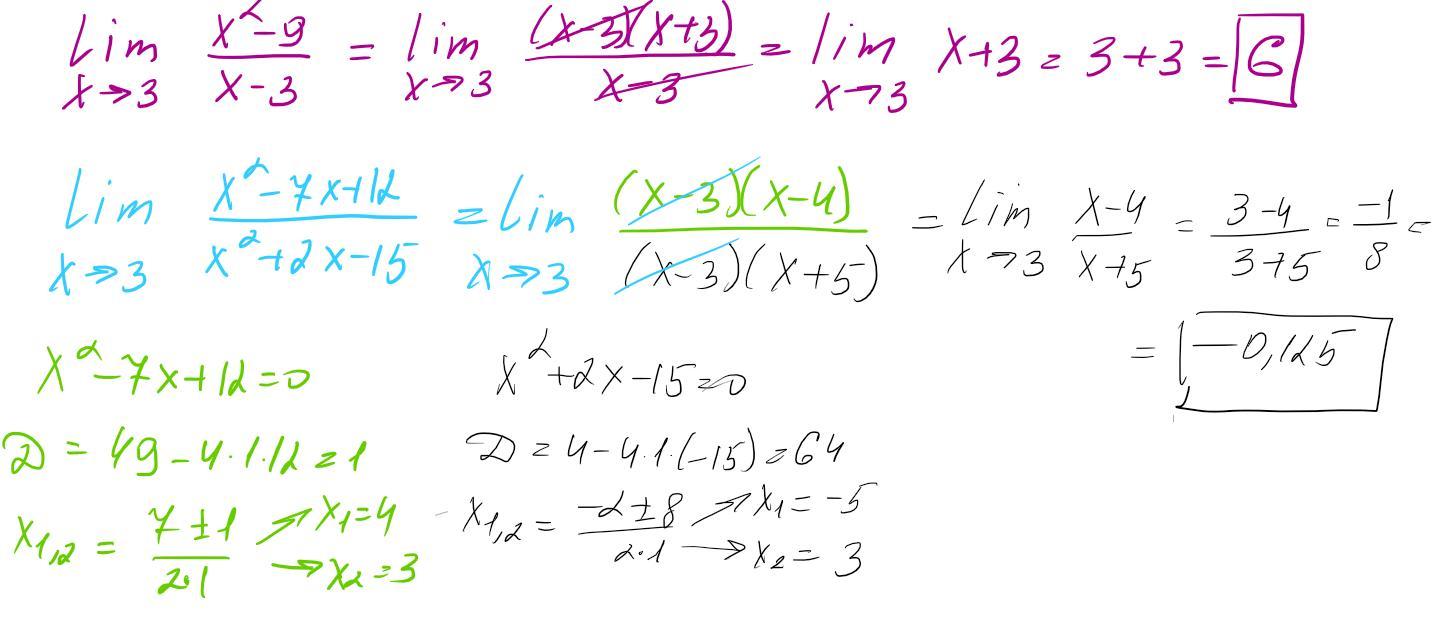 Lim x→3 x²-9 / x-3 = lim x→3 (x-3)(x+3) / x-3 = lim x→3 x+3 = 3+3 = 6
Lim x→3 x²-7x+12 / x²+2x-15 = Lim x→3 (x-3)(x-4) / (x-3)(x+5) = Lim x→3 x-4 / x+5 = 3-4 / 3+5 = -1 / 8 =
= -0,125
x²-7x+12=0
D = 49-4·1·12=1
x1,2 = 7±1 / 2·1 → x1=4 → x2=3
x²+2x-15=0
D = 4-4·1·(-15)=64
x1,2 = -2±8 / 2·1 → x1=-5 → x2=3